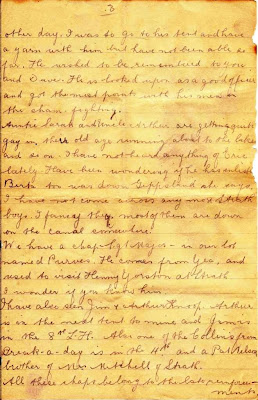 3
other day. I was to go to his tent and have
a yarn with him but have not been able so
far. He wished to be remembered to you
and Dave. He is looked upon as a good officer
and got the most points with his men in
the sham-fighting.
Auntie Sarah and Uncle Arthur are getting quite
gay in there old age running about to the lakes
and so on. I have not heard anything of Eric
lately. Have been wondering if he has enlisted
Berts son was down Gippsland at
I have not come across any more Strath
boys. I fancy they mostly of them are down
on the canal somewhere!
We have a chap Sgt Major - in our lot
named Parives. He comes from Yea, and
used to visit Henny Yorston at Strath
I wonder if you know him.
I have also seen Jim & Arthur Knoop. Arthur
is in the next tent to mine and Jim is
in the 8th L.H. Also one of the Collins from
Break-a-day is in the 4th and a Pat Nelson
brother of Mrs Mitchell of Strath.
All these chaps belong to the late reinforce-
ments